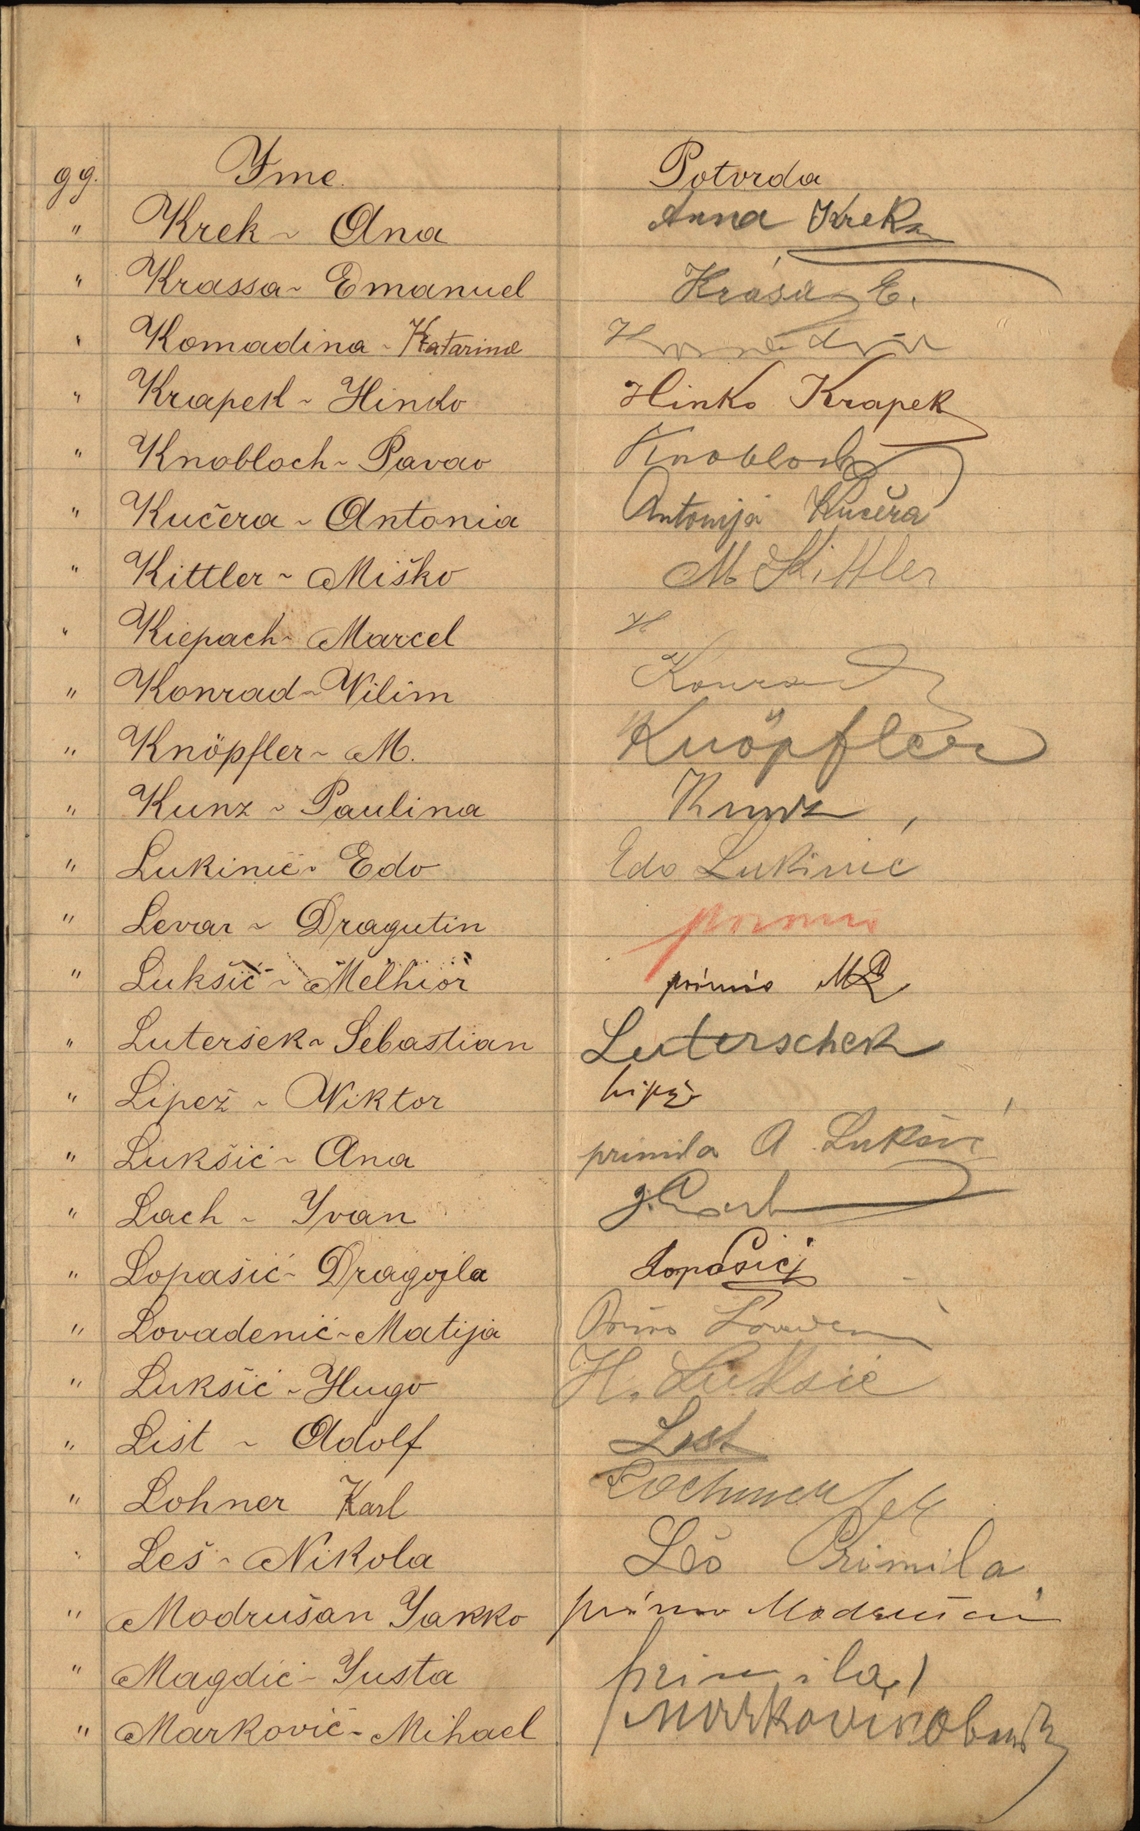 gg. Ime. Potvrda
" Krek ~ Ana Anna Krek
" Krassa ~ Emanuel Krása E.
" Komadina - Katarina
" Krapek ~ Hinko Hinko Krapek
" Knobloch ~ Pavao Knobloch
" Kučera ~ Antonia Antonija Kučera
" Kittler ~ Miško M Kittler
" Kiepach ~ Marcel
" Konrad ~ Vilim Konrad
" Knöpfler ~ M. Knöpfler
" Kunz ~ Paulina Kunz
" Lukinić ~ Edo Edo Lukinić
" Levar ~ Dragutin primio
" Lukšić ~ Melhior primio ML
" Luteršek ~ Sebastian Luterschek
" Lipež ~ Viktor Lipež
" Lukšić ~ Ana primila A Lukšić
" Lach ~ Ivan
" Lopašić ~ Dragojla Lopašić
" Lovadenić ~ Matija
" Luksić ~ Hugo H. Luksić
" List ~ Adolf List
" Lohner Karl
" Leš ~ Nikola Leš Primila
" Modrušan Jakko primio Modrušan
" Magdić ~ Justa primila
" Marković ~ Mihael Marković